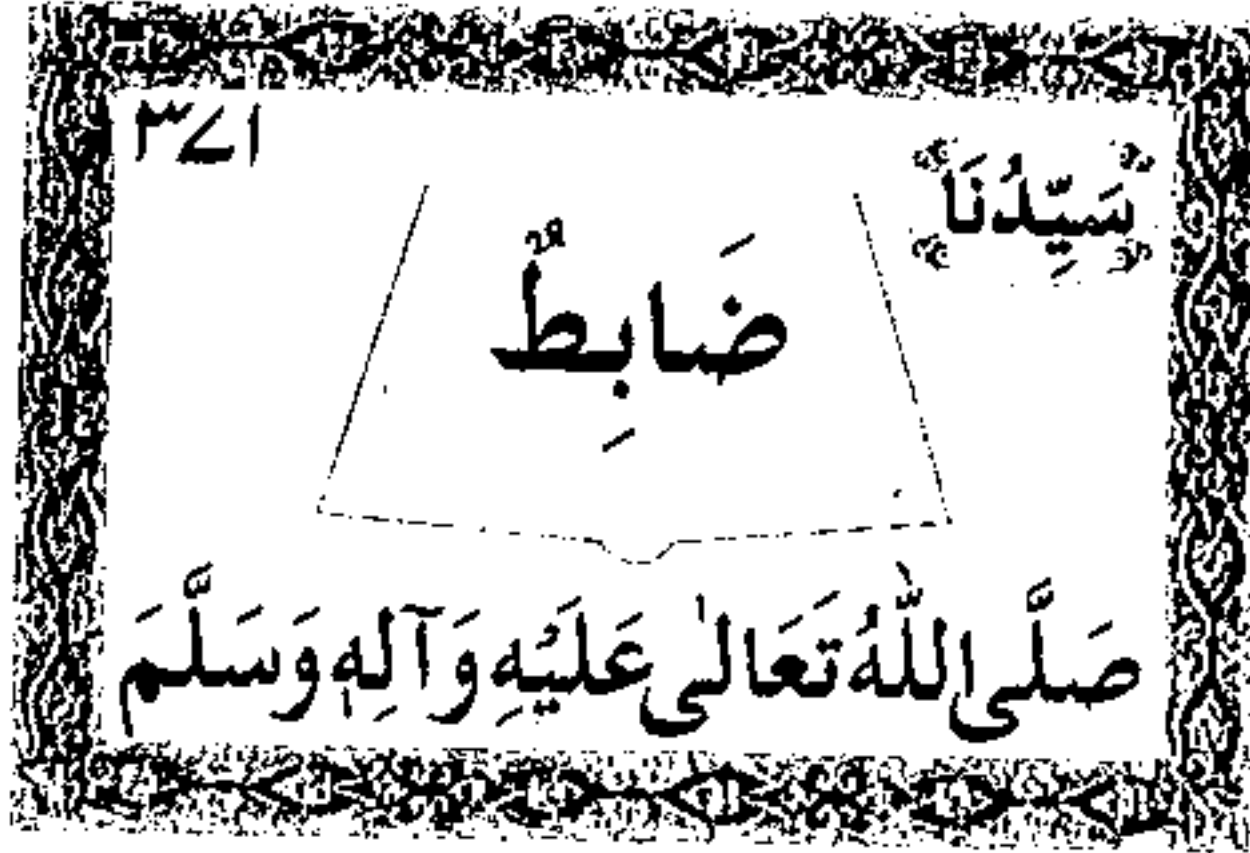 ۳۷۱
سَيِّدُنَا
ضَابِطٌ
صَلَّى اللّٰهُ تَعَالٰى عَلَيْهِ وَآلِهٖ وَسَلَّمَ